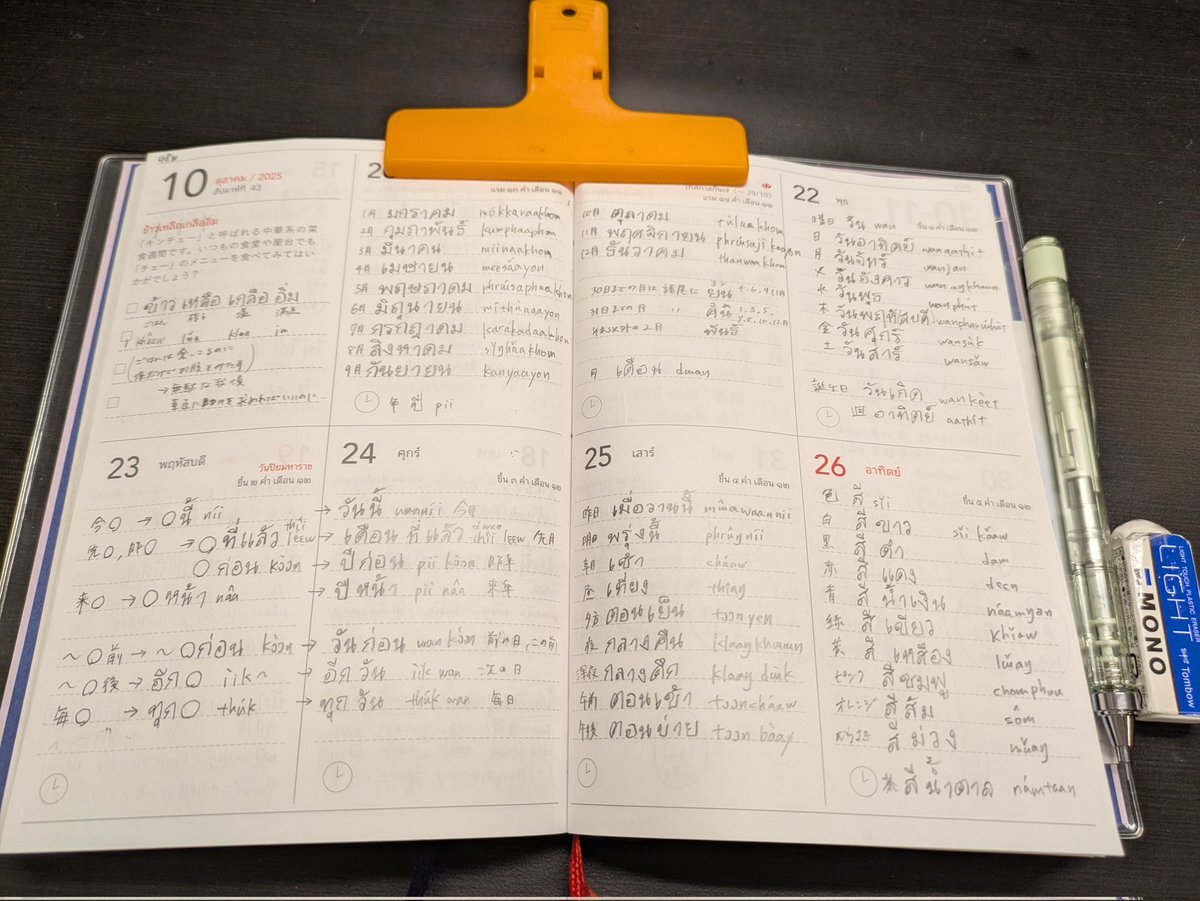 10
ตุลาคม / 2025
สัปดาห์ที่ 43
ข้าวเหลือเกลืออิ่ม
「キンチェー」と呼ばれる中華系の菜
食週間です。いつもの食堂や屋台でも
「チェー」のメニューを食べてみてはい
かがでしょう？
ข้าว เหลือ เกลือ อิ่ม
แรม ๑๓ ค่ำ เดือน ๑๑
1月 มกราคม mókkaraakhom
2月 กุมภาพันธ์ kumphaaphan
3月 มีนาคม miinaakhom
4月 เมษายน meesǎayon
5月 พฤษภาคม phrɯ́tsaphaakhom
6月 มิถุนายน míthùnaayon
7月 กรกฎาคม karakadaakhom
8月 สิงหาคม sǐŋhǎakhom
9月 กันยายน kanyaayon
年 ปี pii
เทศกาลกินเจ (〜 29/10)
แรม ๑๔ ค่ำ เดือน ๑๑
10月 ตุลาคม tùlaakhom
11月 พฤศจิกายน
12月 ธันวาคม thanwakhom
月 เดือน dɯan
22 พุธ
ขึ้น ๑ ค่ำ เดือน ๑๒
曜日 วัน wan
日 วันอาทิตย์ wanaathit
月 วันจันทร์ wanjan
火 วันอังคาร wanaŋkhaan
水 วันพุธ wanphút
木 วันพฤหัสบดี
金 วันศุกร์ wansùk
土 วันสาร์ wansǎw
誕生日 วันเกิด wankèet
週 อาทิตย์ aathít
23 พฤหัสบดี
วันปิยมหาราช
ขึ้น ๒ ค่ำ เดือน ๑๒
今○ → ○นี้ níi
先○, 昨○ → ○ที่แล้ว thîi lɛ́ɛw
○ก่อน kɔ̀ɔn
来○ → ○หน้า nâa
〜○前 → 〜○ก่อน kɔ̀ɔn
〜○後 → อีก○ ìik〜
毎○ → ทุก○ thúk
24 ศุกร์
ขึ้น ๓ ค่ำ เดือน ๑๒
→ วันนี้ wanníi 今日
→ เดือนที่แล้ว dɯan thîi lɛ́ɛw 先月
→ ปีก่อน pii kɔ̀ɔn 昨年
→ ปีหน้า pii nâa 来年
→ วันก่อน wan kɔ̀ɔn
→ อีกวัน ìik wan 次の日
→ ทุกวัน thúk wan 毎日
25 เสาร์
ขึ้น ๔ ค่ำ เดือน ๑๒
昨日 เมื่อวานนี้ mɯ̂awaanníi
明日 พรุ่งนี้ phrûŋníi
朝 เช้า cháaw
昼 เที่ยง thîaŋ
夕方 ตอนเย็น tɔɔnyen
夜 กลางคืน klaaŋkhɯɯn
深夜 กลางดึก klaaŋ dɯ̀k
午前 ตอนเช้า tɔɔncháaw
午後 ตอนบ่าย tɔɔn bàay
26 อาทิตย์
ขึ้น ๕ ค่ำ เดือน ๑๒
色 สี sǐi
白 สีขาว sǐi kǎaw
黒 สีดำ dam
赤 สีแดง dɛɛŋ
青 สีน้ำเงิน náamŋən
緑 สีเขียว khǐaw
黄 สีเหลือง lɯ̌aŋ
ピンク สีชมพู chomphuu
オレンジ สีส้ม sôm
สีม่วง mûaŋ
茶 สีน้ำตาล námtaan
LIGHT TOUCH PLASTIC ERASER
LIGHT
MONO
Tombow